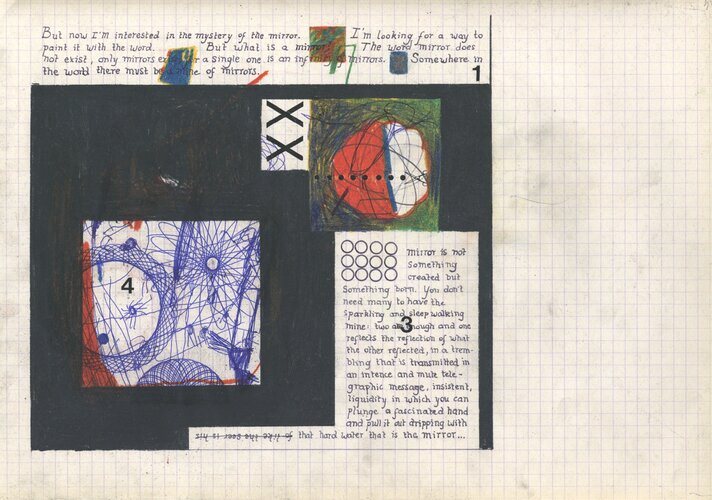 But now I'm interested in the mystery of the mirror. I'm looking for a way to
paint it with the word. But what is a mirror? The word mirror does
not exist, only mirrors for a single one is an of mirrors. Somewhere in
the word there must be a mine of mirrors.
1
XX
XX
mirror is not
something
created but
something born. You don't
need many to have the
sparkling and sleepwalking
mine: two are enough and one
3
reflects the reflection of what
the other reflected, in a trem-
bling that is transmitted in
an intence and mute tele-
graphic message, insistent,
liquidity in which you can
plunge a fascinated hand
and pull it out dripping with
that hard water that is the mirror...
4